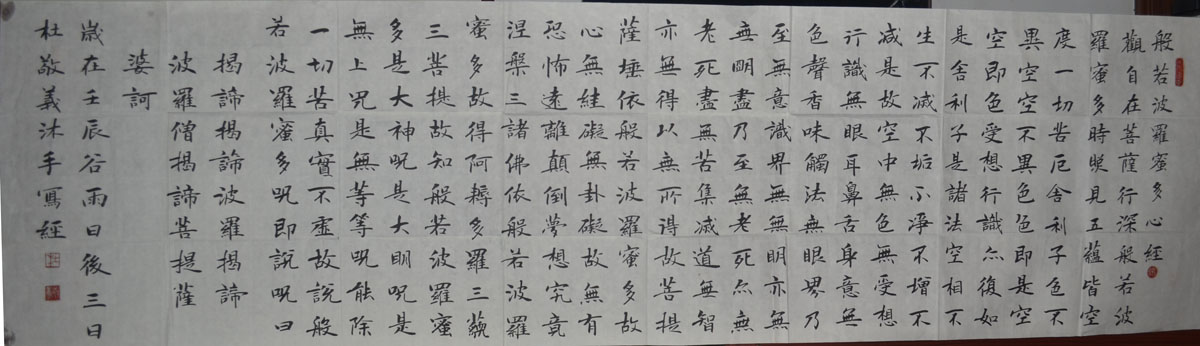 般若波羅蜜多心經
觀自在菩薩行深般若波
羅蜜多時照見五蘊皆空
度一切苦厄舍利子色不
異空空不異色色即是空
空即色受想行識亦復如
是舍利子是諸法空相不
生不滅不垢不淨不增不
減是故空中無色無受想
行識無眼耳鼻舌身意無
色聲香味觸法無眼界乃
至無意識界無無明亦無
無明盡乃至無老死亦無
老死盡無苦集滅道無智
亦無得以無所得故菩提
薩埵依般若波羅蜜多故
心無絓礙無卦礙故無有
恐怖遠離顛倒夢想究竟
涅槃三諸佛依般若波羅
蜜多故得阿耨多羅三藐
三菩提故知般若波羅蜜
多是大神咒是大明咒是
無上咒是無等等咒能除
一切苦真實不虛故說般
若波羅蜜多咒即說咒曰
揭諦揭諦波羅揭諦
波羅僧揭諦菩提薩
婆訶
歲在壬辰谷雨日後三日
杜敬義沐手寫經